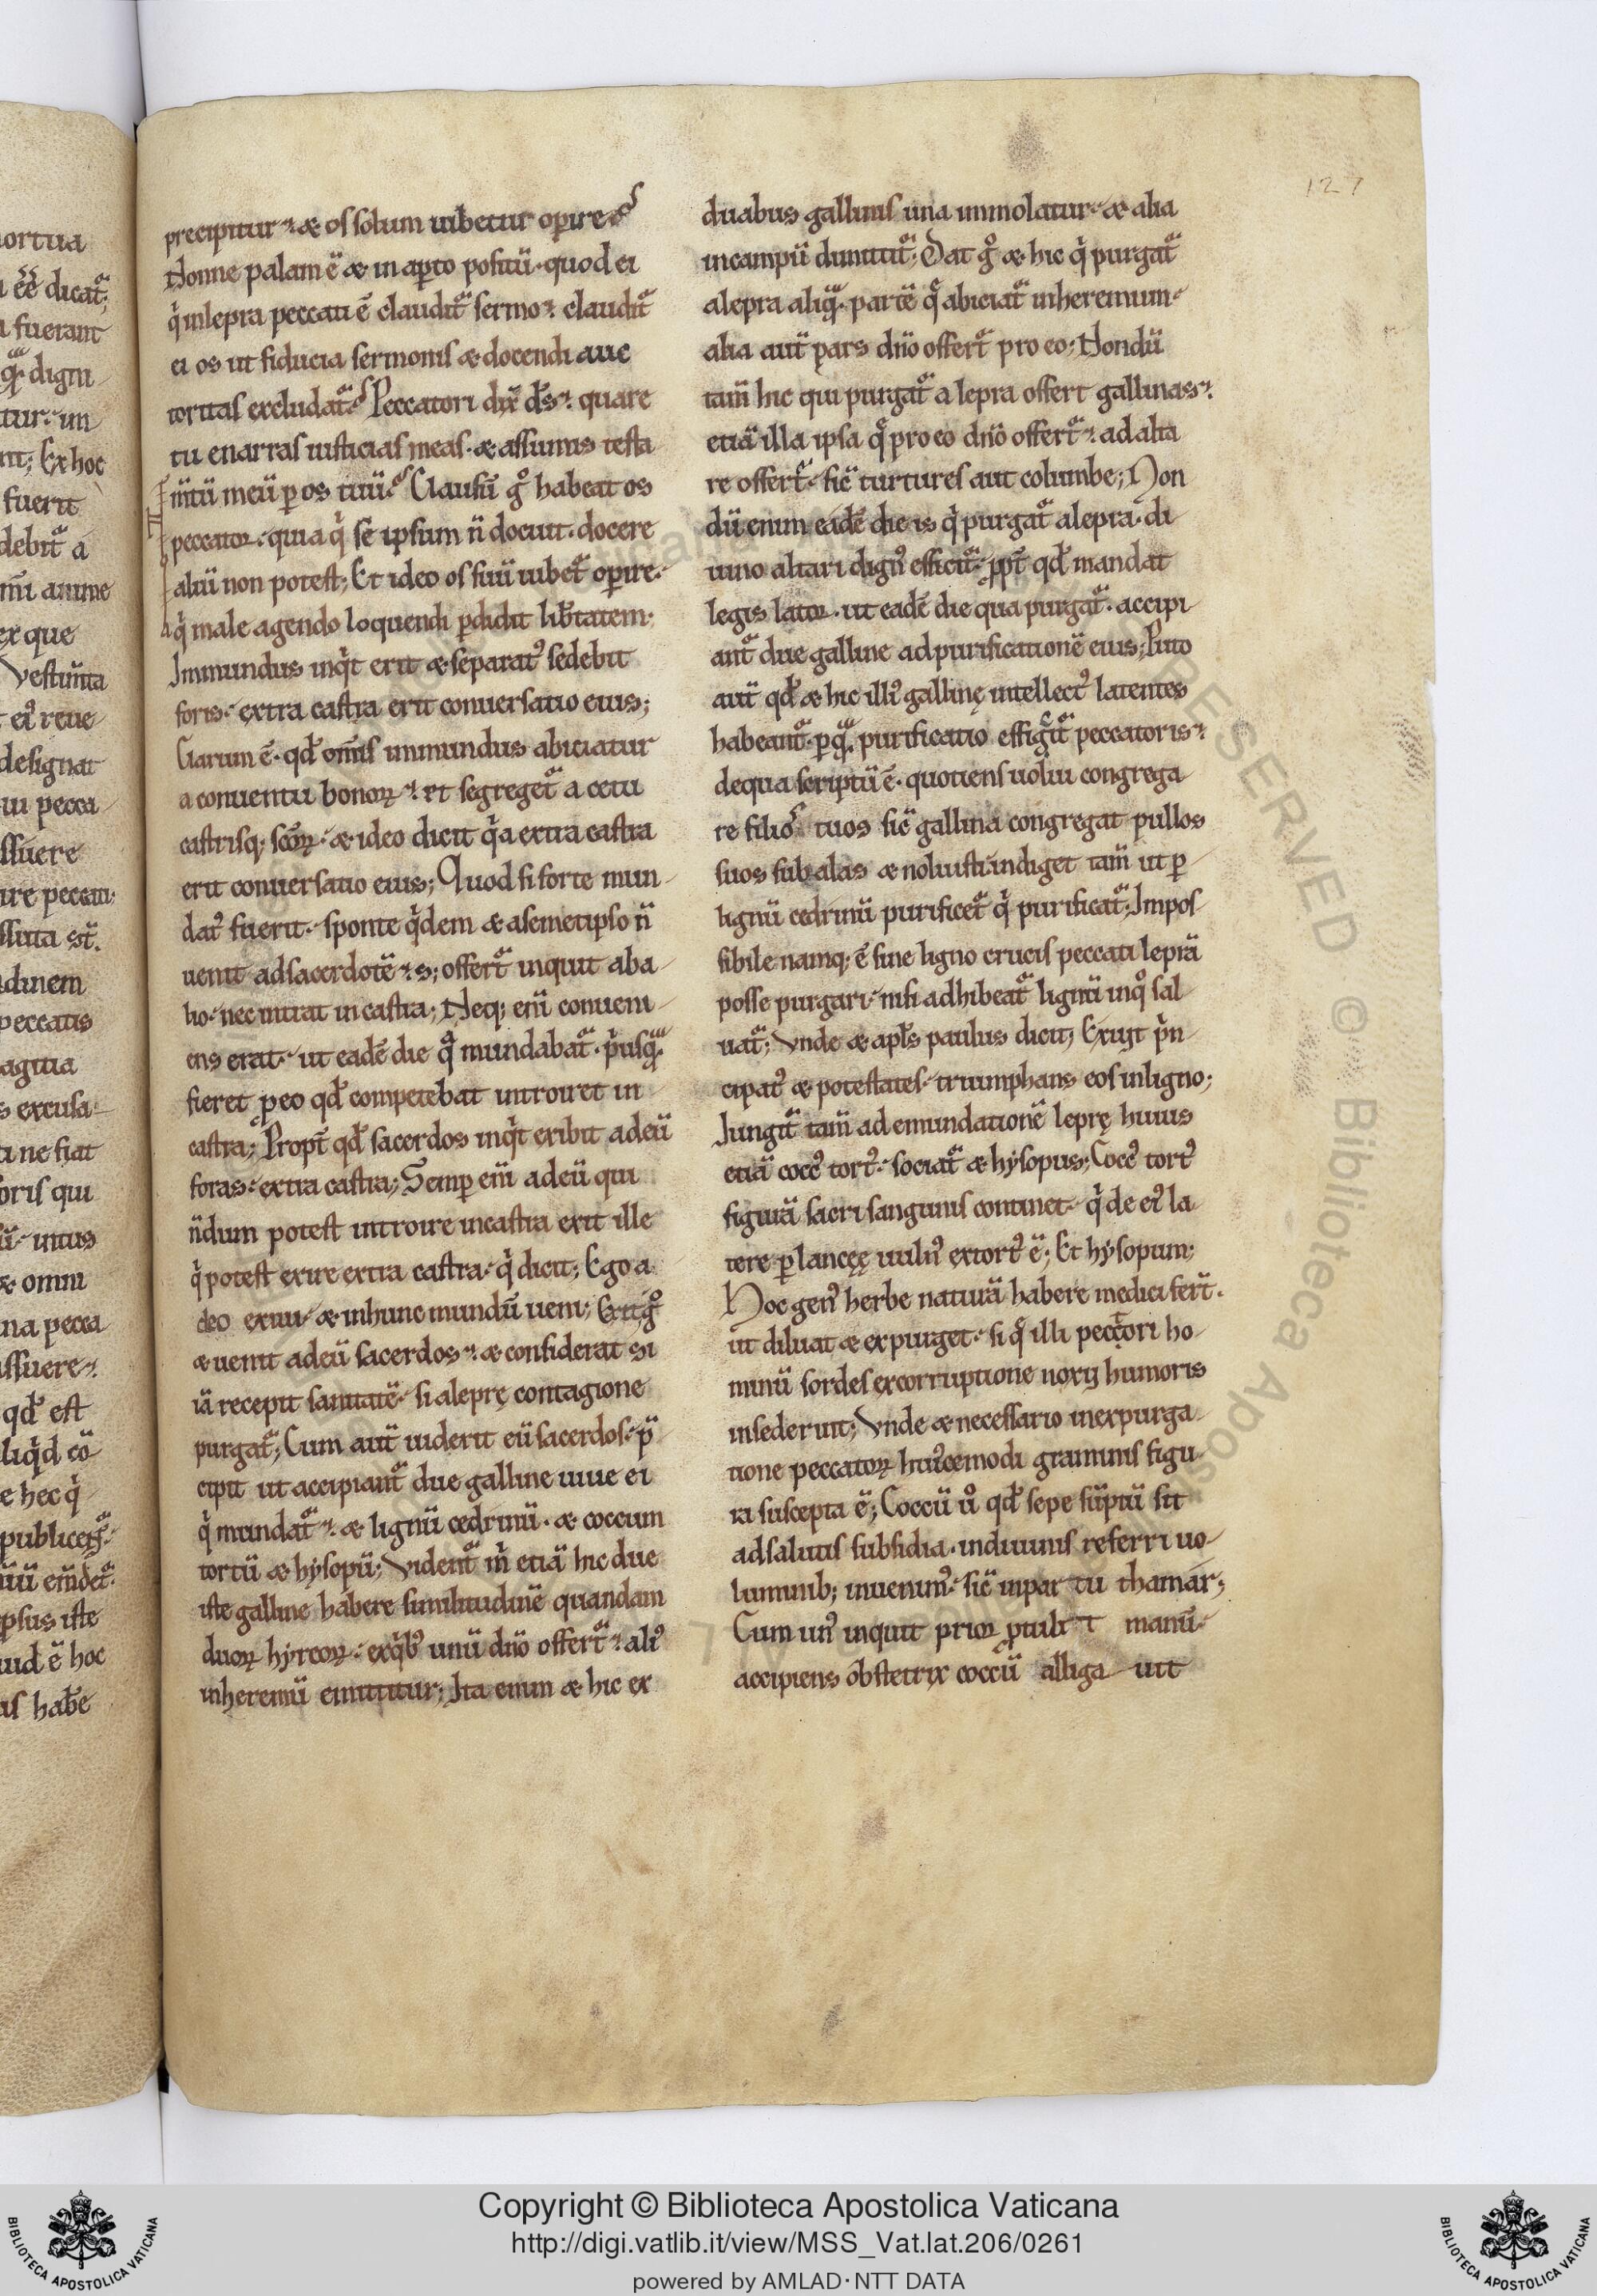 127
precipitur· æ os solum iubetur operire
Nonne palam ē æ in aꝑto positū· quod ei
q̓ in lepra peccati ē claudit᷑ sermo· claudit᷑
ei os ut fiducia sermonis æ docendi auc
toritas excludat᷑· Peccatori dix̄ ds̄· quare
tu enarras iusticias meas· æ assumis testa
m̄tū meū ꝑ os tuū· Clausū gͦ habeat os
peccatoꝝ· quia q̓ se ipsum n̄ docuit· docere
aliū non potest; Et ideo os suū iubet᷑ oꝑire·
q̓ male agendo loquendi ꝑdidit lib̄tatem·
Immundus inq̓t erit æ separatꝰ sedebit
foris· extra castra erit conuersatio eius;
Clarum ē· qd̄ om̄is immundus abiciatur
a conuentu bonoꝝ· et segreget᷑ a cetu
castrisq; scōꝝ· æ ideo dicit q̓a extra castra
erit conuersatio eius; Quod si forte mun
datꝰ fuerit· sponte q̓dem æ a semetipso n̄
uenit ad sacerdotē· s; offert᷑ inquit ab a
lio· nec intrat in castra; Neq; eni̅ conueni
ens erat· ut eadē die qͦ mundabat᷑· p̓usq̄·
fieret ꝑ eo qd̄ competebat introiret in
castra; Propt̄ qd̄ sacerdos inq̓t exibit ad eū
foras· extra castra; Semꝑ eni̅ ad eū qui
n̄dum potest introire in castra exit ille
q̓ potest exire extra castra· q̓ dicit; Ego a
deo exiui· æ in hunc mundū ueni; Exit gͦ
æ uenit ad eū sacerdos· æ considerat si
iā recepit sanitatē· si a leprę contagione
purgat᷑; Cum aut̄ uiderit eū sacerdos· p̄
cipit ut accipiant᷑ due galline uiue ei
q̓ mundat᷑· æ lignū cedrinū· æ coccum
tortū æ hysopū; Vident᷑ m̓ etiā hic due
iste galline habere similitudinē quandam
duoꝝ hyrcoꝝ· ex q̓bꝰ unū dn̄o offert᷑· aliꝰ
in heremū emittitur; Ita enim æ hic ex
duabus gallinis una immolatur· æ alia
in campū dimittit᷑; Dat gͦ æ hic q̓ purgat᷑
a lepra aliq̄· partē q̄ abiciat᷑ in heremum·
alia aut̄ pars dn̄o offert᷑ pro eo; Nondū
tam̄ hic qui purgat᷑ a lepra offert gallinas·
etiā illa ipsa q̄ pro eo dn̄o offert᷑· ad alta
re offert᷑· sic̄ turtures aut columbe; Non
dū enim eadē die is q̓ purgat᷑ a lepra· di
uino altari dignꝰ efficit᷑· ꝓpt̄ qd̄ mandat
legis latoꝝ· ut eadē die qua purgat᷑· accipi
ant᷑ due galline ad purificationē eius; Puto
aut̄ qd̄ æ hic illiꝰ gallinę intellectꝰ latentes
habeant᷑· ꝑ q̄· purificatio effigit᷑ peccatoris·
de qua scriptū ē· quotiens uolui congrega
re filios tuos sic̄ gallina congregat pullos
suos sub alas æ noluisti· indiget tam̄ ut ꝑ
lignū cedrinū purificet᷑ q̓ purificat᷑; Impos
sibile namq; ē sine ligno crucis peccati leprā
posse purgari· nisi adhibeat᷑ lignū in qͦ sal
uat᷑; Vnde æ apl̄s paulus dicit; Exuit p̓n
cipatꝰ æ potestates· triumphans eos in ligno;
Iungit᷑ tam̄ ad emundationē leprę huius
etiā coccꝰ tortꝰ· sociat᷑ æ hysopus; Coccꝰ tortꝰ
figurā sacri sanguinis continet· q̓ de eiꝰ la
tere ꝑ lanceę uulnꝰ extortꝰ ē; Et hysopum;
Hoc genꝰ herbe naturā habere medici fert᷑·
ut diluat æ expurget· si q̄ illi pectori ho
minū sordes ex corruptione noxij humoris
insederint; Vnde æ necessario in expurga
tione peccatoꝝ huiꝰcemodi graminis figu
ra suscepta ē; Coccū uͦ qd̄ sepe sūptū sit
ad salutis subsidia· in diuinis referri uo
luminib; inuenimꝰ· sic̄ in partu thamar;
Cum unꝰ inquit prioꝝ ꝓtulit manū·
accipiens obstetrix coccū alligauit
Copyright © Biblioteca Apostolica Vaticana
http://digi.vatlib.it/view/MSS_Vat.lat.206/0261
powered by AMLAD·NTT DATA
BIBLIOTECA APOSTOLICA VATICANA
BIBLIOTECA APOSTOLICA VATICANA